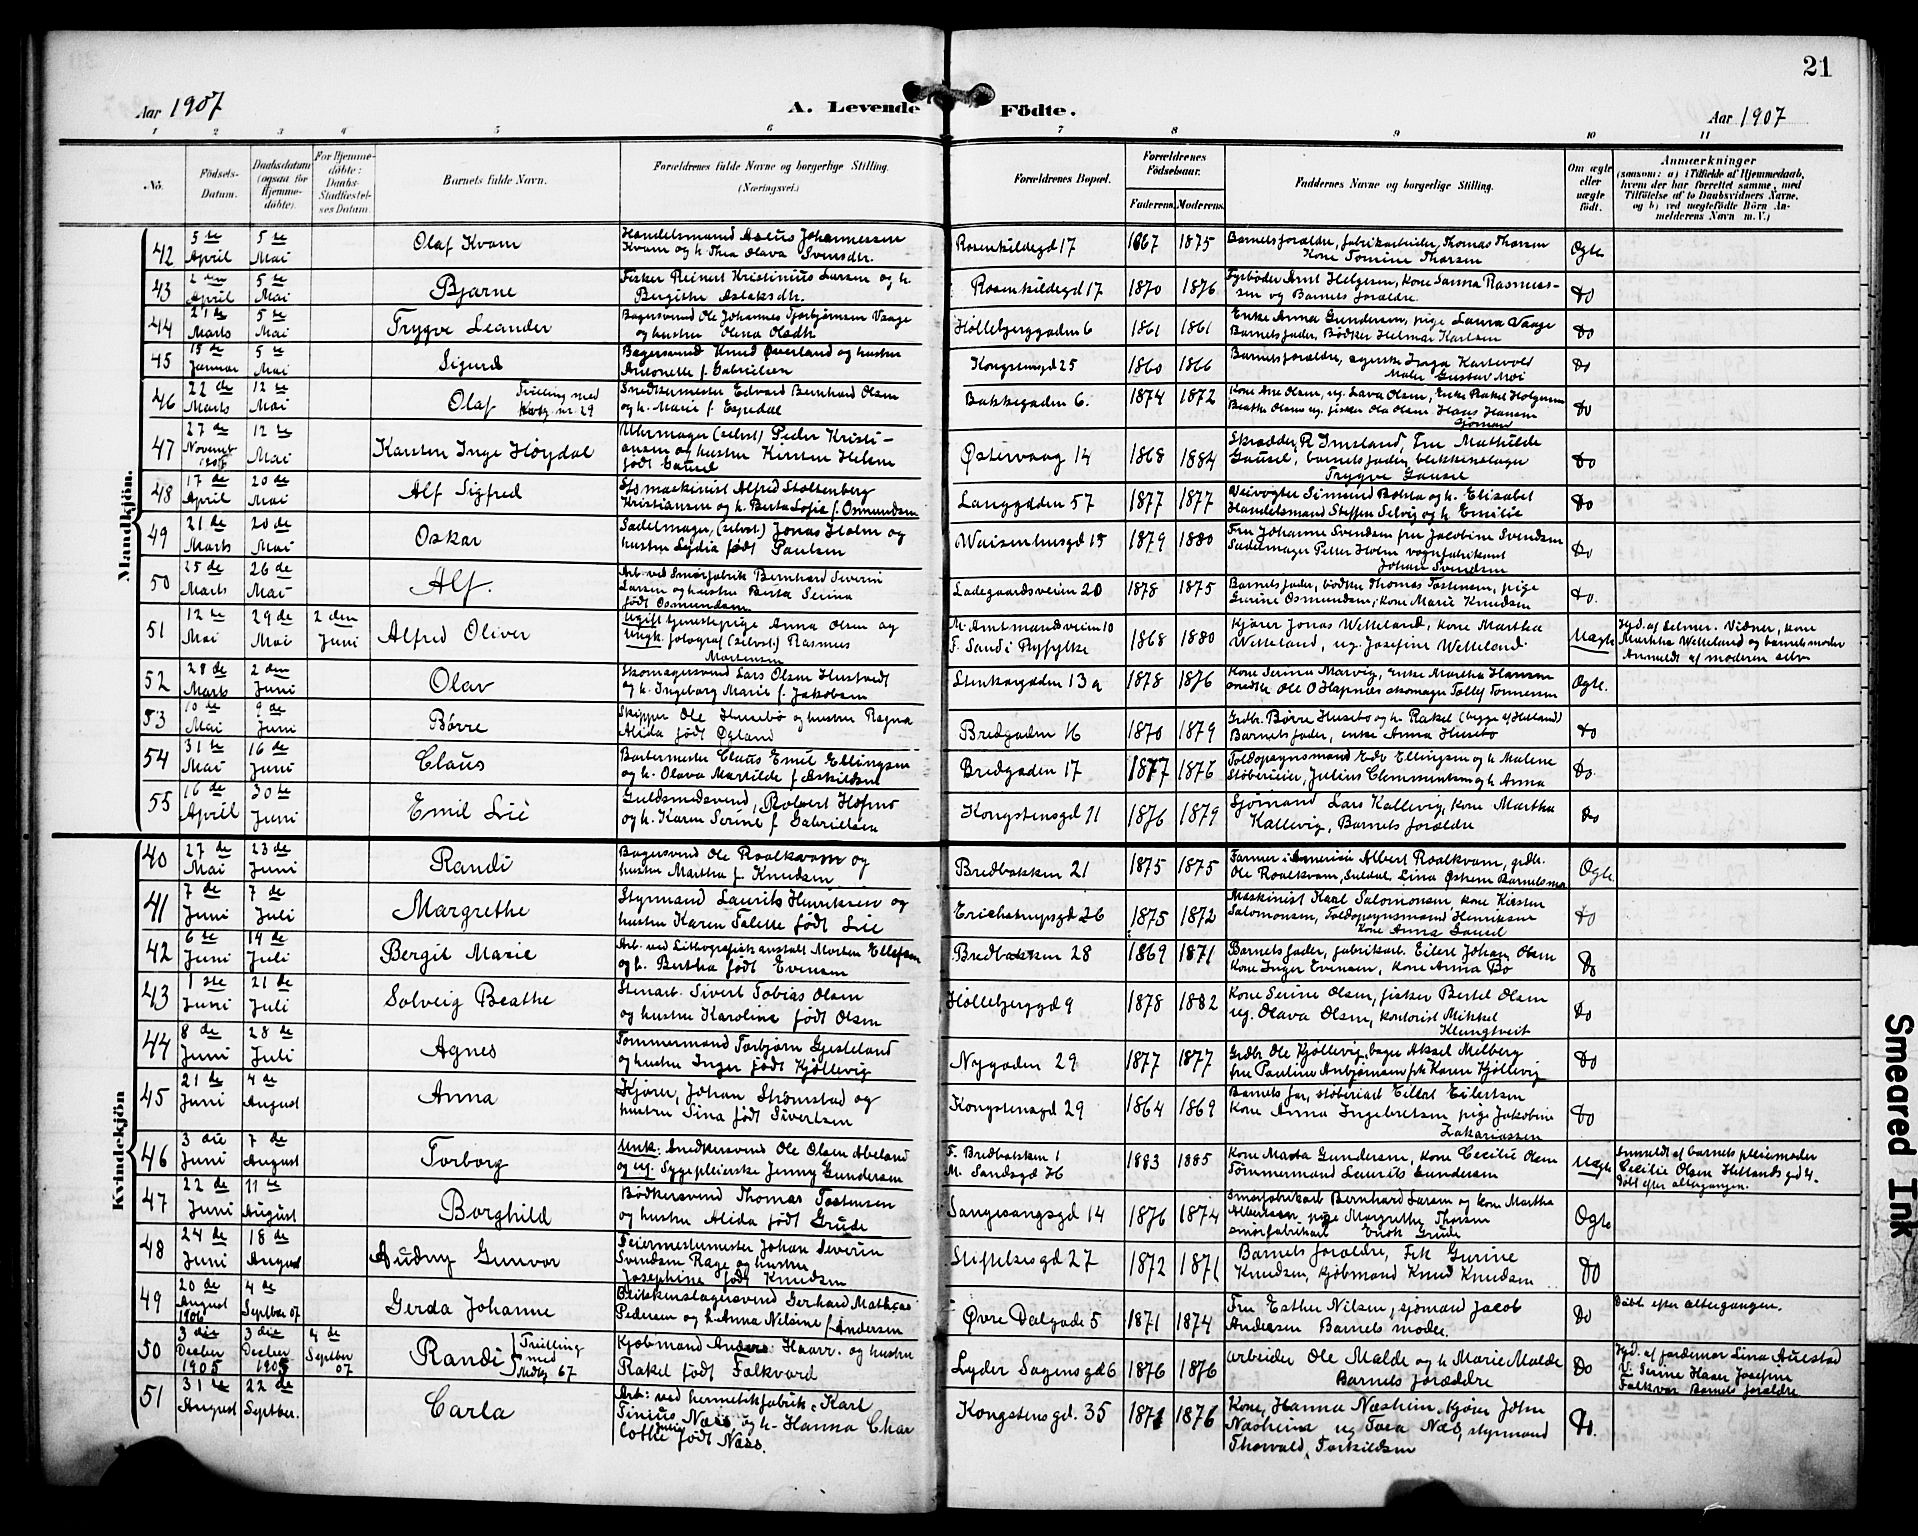 21
Aar 1907
A. Levende Födte.
Aar 1907
1 2 3 4 5 6 7 8 9 10 11
No.
Födsels-Datum.
Daabsdatum (ogsaa for Hjemme-döbte).
For Hjemme-döbte: Daabs-Stadfæstel-ses Datum.
Barnets fulde Navn.
Forældrenes fulde Navne og borgerlige Stilling. (Næringsvei.)
Forældrenes Bopæl.
Forældrenes Födselsaar.
Faderens. Moderens.
Faddernes Navne og borgerlige Stilling.
Om ægte eller uægte født.
Anmærkninger
(saasom: a) i Tilfælde af Hjemmedaab, hvem der har forrettet samme, med Tilföielse af to Daabsvidners Navne, og b) ved uægtefödte Börn An-melderens Navn m. V.)
Mandkjön.
42 5te April 5te Mai Olaf Kvam Handelsmand Johannessen Kvam og h. Thea Olava Svensdtr. Rosenkildegd 17 1867 1875 Barnets forældre, fabrikarbeider, Thomas Thorsen Kone Tomine Thorsen Ægte
43 2den April 5te Mai Bjarne Fisker Reinert Kristinius Larsen og h. Bergithe Aslaksdtr. Rosenkildegd 17 1870 1876 Fyrbøder Arnt Helgesen, kone Sanna Rasmus-sen og Barnets forældre. Do
44 21de Marts 5te Mai Trygve Leander Bagersvend Ole Johannes Torbjørnsen Vaage og hustru Olena Olsdtr Hollebjerggaden 6 1861 1861 Enke Anna Gundersen, pige Laura Vaage Barnets fader, Bødker Helmar Karlsen Do
45 15de Januar 5te Mai Sigurd Bagersvend Knud Øverland og hustru Antonette f. Gabrielsen Kongstensgd 25 1860 1866 Barnets forældre, Inga Kartevold Maler Gustav Moi Do
46 22de Marts 12te Mai Olaf Trilling med Kvkj. nr. 29 Snedkermester Edvard Bernhard Olsen og h. Marie f. Espedal Bakkegaden 6. 1874 1872 Kone Ane Olsen, ug. Lava Olsen, Enke Rakel Holgersen Beathe Olsen ug. fisker Ola Olsen Hans Hansen Sjømand Do
47 27de Novembr 12te Mai Karsten Inge Høydal Uhrmager (selvst) Peder Kristi-ansen og hustru Kirsten Helene født Gausel Østervaag 14 1868 1884 Skrædder R Imsland, Fru Mathilde Gausel, barnets fader, blikkenslager Trygve Gausel Do
48 17de April 20de Mai Alf Sigfred maskinist Alfred Stoltenberg Kristiansen og h. Berta Sofie f. Osmundsen Langgaden 57 1877 1877 Veivogter Simund Bokta og h. Elisabet Handelsmand Steffen Selvig og h. Emilie Do
49 21de Marts 20de Mai Oskar Sadelmager, (selvst) Jonas Holm og hustru Lydia født Paulsen Waisenhusgd 15 1879 1880 Fru Johanne Svendsen fru Jacobine Svendsen Sadelmager Peter Holm vognfabrikant Johan Svendsen Do
50 25de Marts 26de Mai Alf. Arb. ved Smørfabrik Bernhard Severin Larsen og hustru Berta Serina født Osmundsen Ladegaardsveien 20 1878 1875 Barnets fader, bødker Thomas Tostensen, pige Gurine Osmundsen, kone Marie Knudsen Do.
51 12te Mai 29de Mai 2den Juni Alfred Oliver Ugift tjenestepige Anna Olsen og Ungk. fotograf (selvst.) Rasmus Mortensen M. Amtmandsveien 10 F. Sand i Ryfylke 1868 1880 Kjører Jonas Wetteland, kone Martha Wetteland, ug. Josefine Wetteland. Uægte Hjd. af Selmer. Vidner, kone Martha Wetteland og barnets moder Anmeldt af moderen selv
52 28de Marts 2den Juni Olav Skomagersvend Lars Olsen Hustvedt og h. Ingeborg Marie f. Jakobsen Stenkargaden 13a 1878 1876 Kone Serina Marvig, enke Martha Hansen snedker Ole O Hapnæs skomager Tollef Tønnesen Ægte.
53 10de Mai 9de Juni Børre Skipper Ole Husebø og hustru Ragna Alida født Øgland Bredgaden 16 1870 1879 Grdbr. Børre Husebø og h. Rakel (begge af Hetland) Barnets fader, enke Anna Husebø Do
54 31te Mai 16de Juni Claus Bartermester Claus Emil Ellingsen og h. Olava Martilde f. Eskildsen Bredgaden 17 1877 1876 Toldopsynsmand Edv Ellingsen og h. Malene Støberieier, Julius Clemmentsen og h. Anna Do.
55 16de April 30te Juni Emil Lie Guldsmedsvend, Robert Hofmo og h. Karen Serine f. Gabrielsen Kongstensgd 11 1876 1879 Sjømand Lars Kallevig, kone Martha Kallevig, Barnets forældre Do
Kvindekjön
40 27de Mai 23de Juni Randi Bagersvend Ole Roalkvam og hustru Martha f. Knudsen Bredbakken 21 1875 1875 Farmer i Amerika Albert Roalkvam, grdbr. Ole Roalkvam, Suldal, Lina Østrem Barnets mor Ægte
41 7de Juni 7de Juli Margrethe Styrmand Laurits Henriksen og hustru Karen Talette født Lie Erichstrupsgd 26 1875 1872 Maskinist Karl Salomonsen, kone Kirsten Salomonsen, Toldopsynsmand Henriksen Kone Anna Gausel Do
42 6te Juni 14de Juli Bergit Marie Arb. ved Lithografisk anstalt Morten Ellefsen og h. Bertha født Evensen Bredbakken 28 1869 1871 Barnets fader, fabrikarb. Eilert Johan Olsen Kone Inger Evensen, kone Anna Bø Do
43 1ste Juni 21de Juli Solveig Beathe Stenarb. Sivert Tobias Olsen og hustru Karoline født Olsen Hollebjerggd 9 1878 1882 Kone Serine Olsen, fisker Bertel Olsen ug. Olava Olsen, kontorist Mikkel Klungtveit Do
44 8de Juni 28de Juli Agnes Tømmermand Torbjørn Gjesteland og hustru Inger født Kjøllevig Nygaden 29 1877 1877 Grdbr Ole Kjøllevig, bager Aksel Melberg fru Pauline Anbjørnsen frk Karen Kjøllevig Do
45 21de Juni 4de August Anna Kjører, Johan Strømstad og hustru Sina født Sivertsen Kongstensgd 29 1864 1869 Barnets far, støberiarb Eilert Eilertsen Kone Anna Ingebretsen pige Jakobine Zakariassen Do
46 3die Juni 7de August Torborg Unk: Snedkersvend Ole Olsen Abeland og ug. Sygepleierske Jenny Gundersen F. Bredbakken 1 M. Sandsgd 16 1883 1885 Kone Marta Gundersen, kone Cecilie Olsen Tømmermand Laurits Gundersen Uægte Anmeldt af barnets pleiemoder Cecilie Olsen Hetlandsgd 4. Døbt efter altergangen.
47 22de Juni 11te August Borghild Bødkersvend Thomas Tostensen og hustru Alida født Grude Sangesangsgd 14 1876 1874 Smørfabrikarb Bernhard Larsen og kone Martha Albertsen, pige Margrethe Thorsen smørfabrikarb Enok Grude Ægte
48 24de Juni 18de August Audny Gunvor Feiermestermester Johan Severin Svendsen Rage og hustru Josephine født Knudsen Stiftelsesgd 27 1872 1871 Barnets forældre, Frk Gurine Knudsen, kjøbmand Knud Knudsen Do
49 20de August 1906 4de Septbr 07 Gerda Johanne Blikkenslagersvend Gerhard Mathias Pedersen og h. Anna Nilsine f. Andersen Øvre Dalgade 5 1871 1874 Fru Esther Nilsen, sjømand Jacob Andersen Barnets moder. Do Døbt efter altergangen.
50 3die Decbr 1905 3die Decbr 1905 4de Septbr 07 Randi Trilling med Mdkj 67 Kjøbmand Anders Haarr. og hustru Rakel født Falkvard Lyder Sagensgd 6 1876 1876 arbeider Ole Malde og h. Marie Malde Barnets forældre Do Hjd. af jordemor Lina Auestad V. Serine Haarr Josefine Falkvar Barnets forældre
51 31te August 22de Septber. Carla Arb: ved hermetikfabrik, Karl Tinius Næss og h. Hanna Char lotte Julie født Næss. Kongstensgd. 35 1871 1876 Kone, Hanna Næsheim, kjører John Næsheim ug Tora Næs, styrmand Thorvald Torkildsen Do.
Smeared Ink